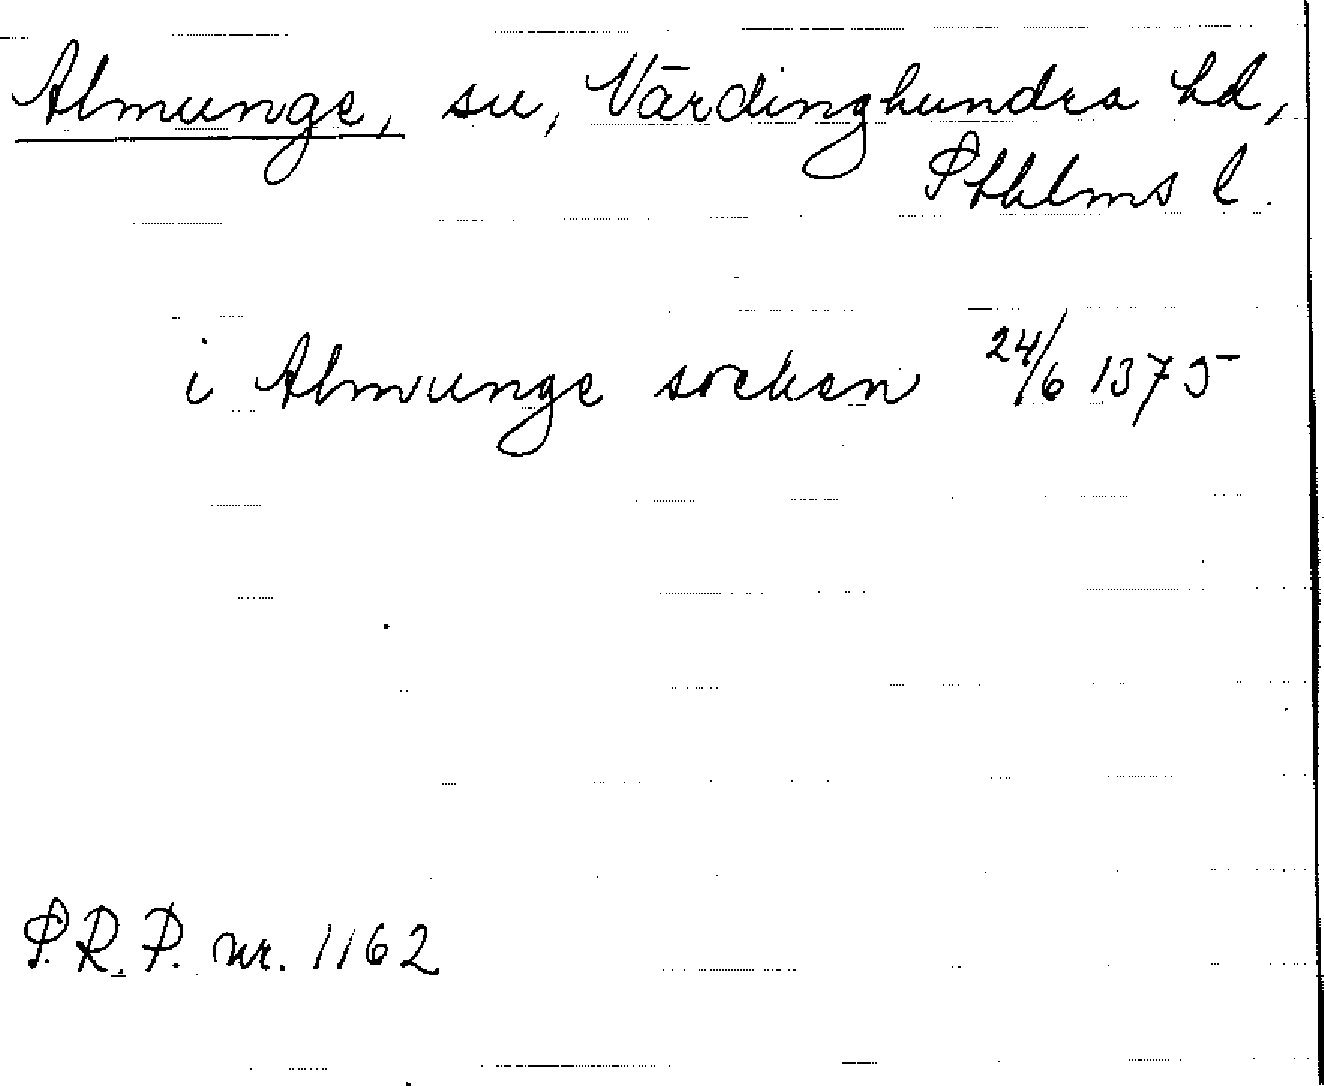 Almunge, sn, Närdinghundra hd,
Sthlms l.
i Almunge socken 24/6 1375
S.R.P. nr. 1162